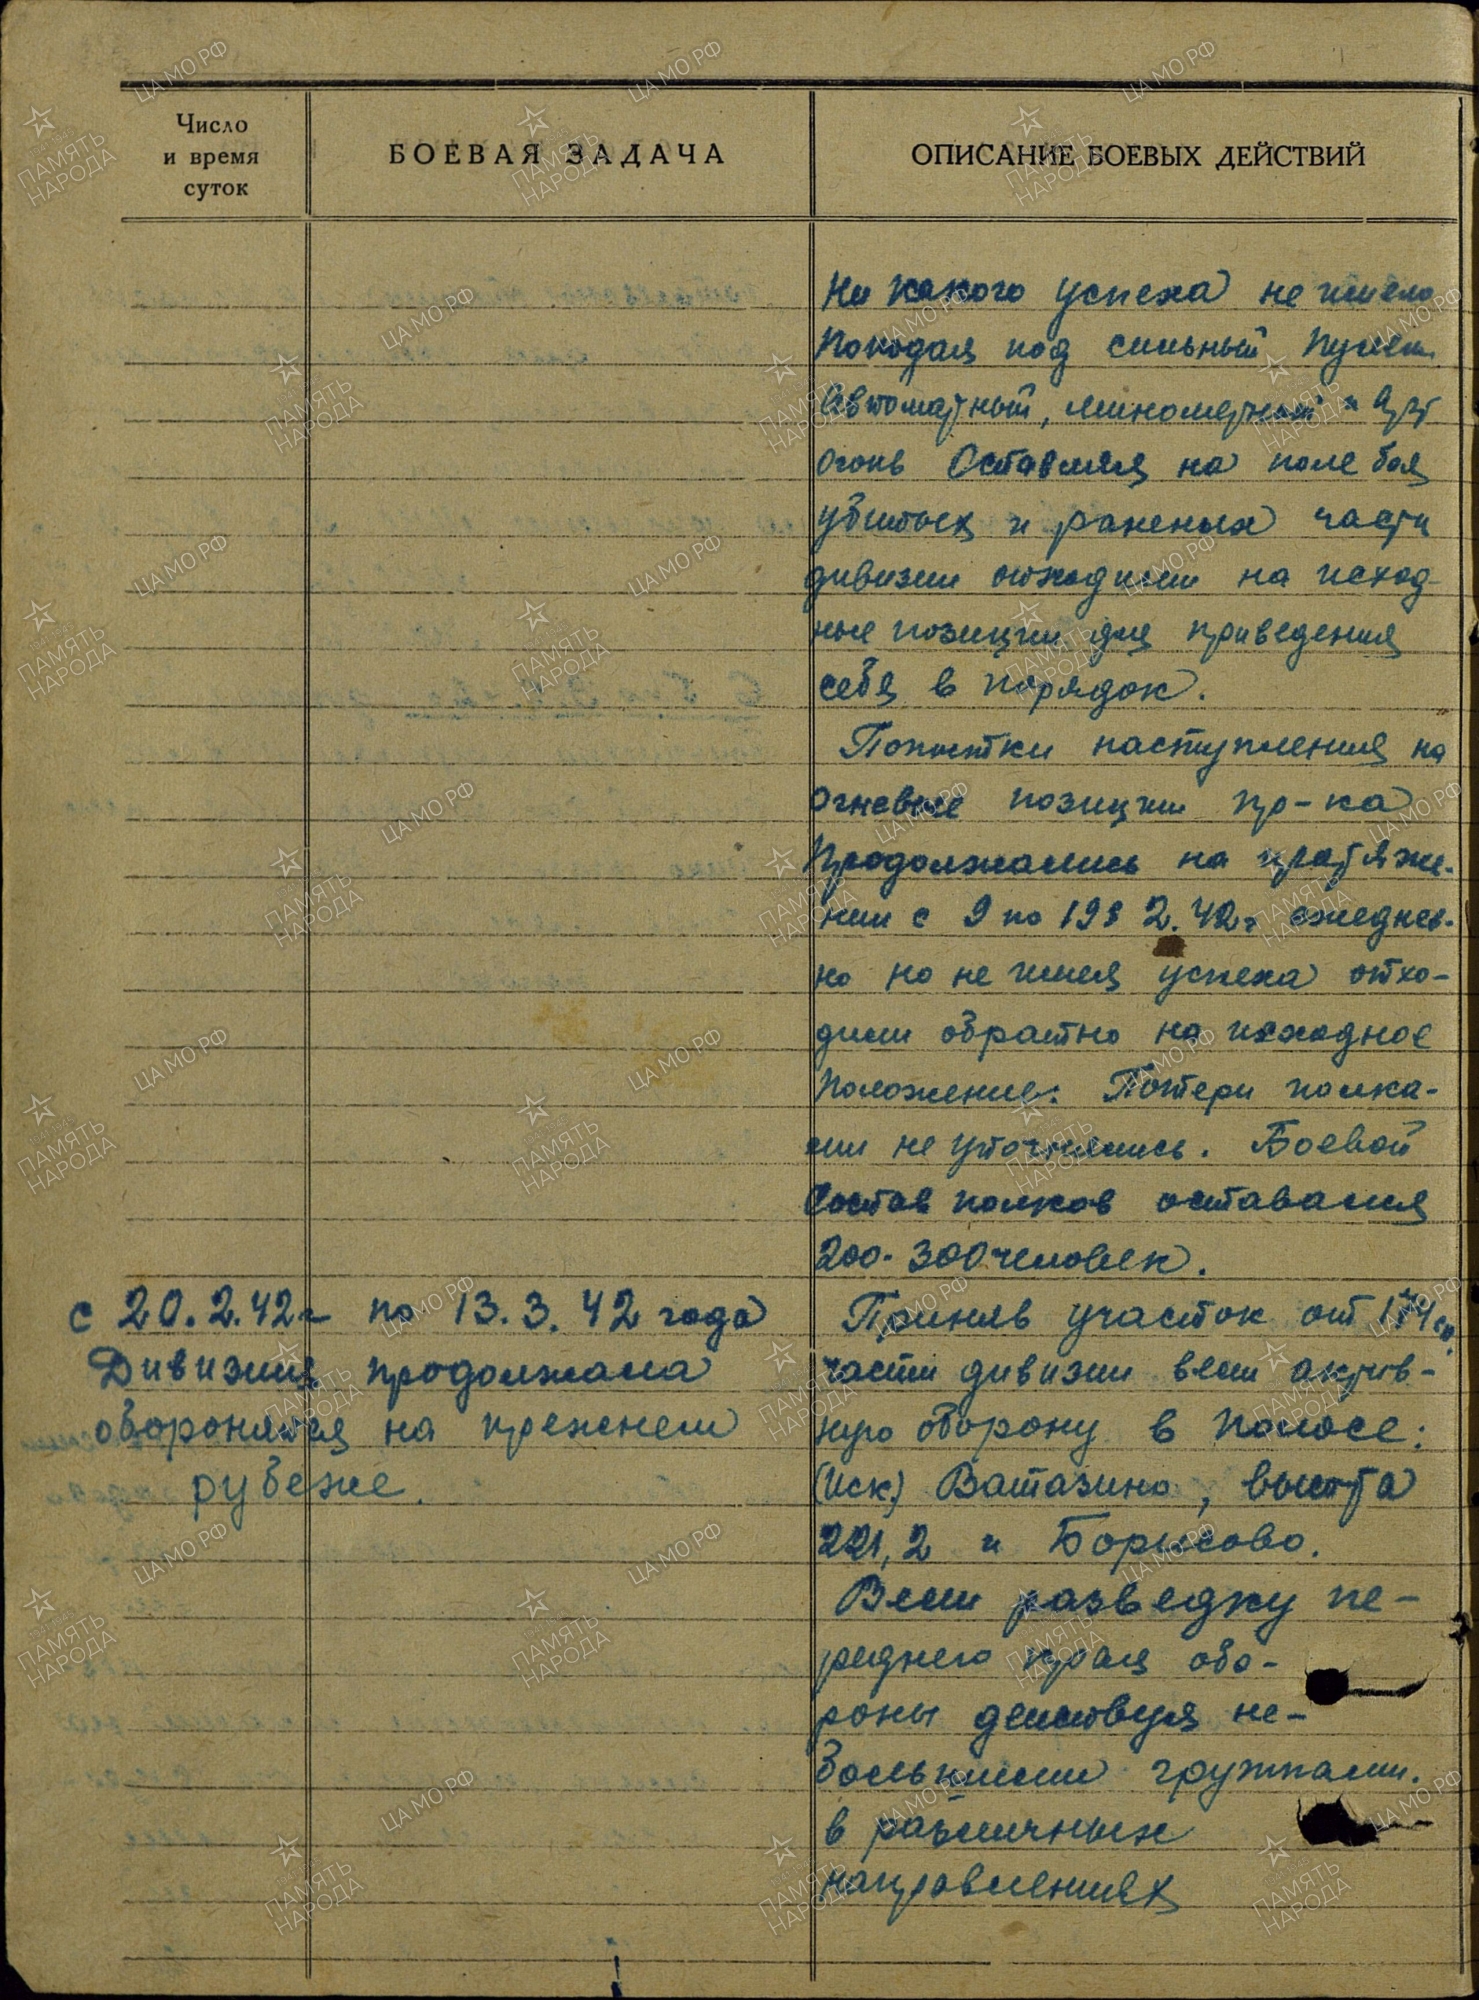 Число
и время
суток
БОЕВАЯ ЗАДАЧА
ОПИСАНИЕ БОЕВЫХ ДЕЙСТВИЙ
Ни какого успеха не имело
Попадая под сильный пулем.
Автоматный, минометный и арт
огонь Оставляя на поле боя
убитых и раненых части
дивизии отходили на исход-
ные позиции для приведения
себя в порядок.
Попытки наступления на
огневые позиции пр-ка
продолжались на протяже-
нии с 9 по 19 2.42г ежеднев-
но но не имея успеха отхо-
дили обратно на исходное
положение. Потери полка-
ми не уточнялись. Боевой
Состав полков оставался
200-300 человек.
с 20.2.42г по 13.3.42 года
Дивизия продолжала
обороняться на прежнем
рубеже.
Приняв участок от 174 сд
части дивизии вели актив-
ную оборону в полосе:
(иск) Ватазино, высота
221,2 и Борисово.
Вели разведку пе-
реднего края обо-
роны действуя не-
большими группами.
в различных
направлениях
ПАМЯТЬ
НАРОДА
ЦА МО РФ